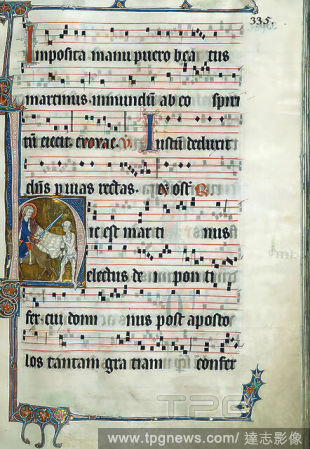 335.
Imposita manu puero bea tus
martinus inmundū ab eo spiri
tū eiecit. evovae. V Iustū deduxit
dn̄s p vias rectas. R
Hic est mar ti nus
electus de pon ti
fex cui domi nus post aposto
los tantam gra tiam confer
TPG
www.tpgnews.com/達志影像